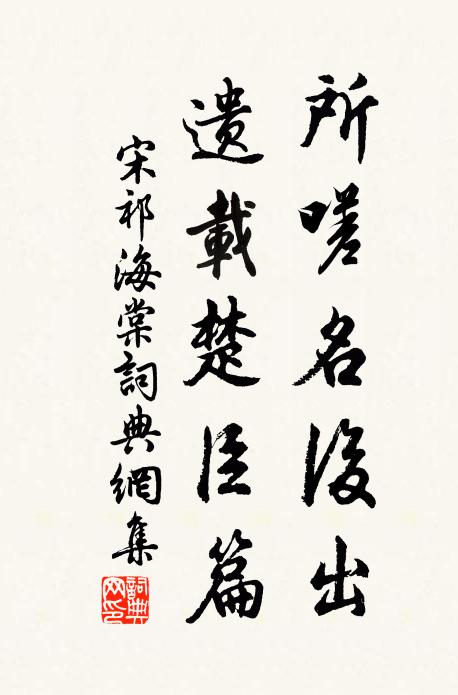 所嗟名後出
遺載楚臣篇
宋祁海棠詞典網集
詞典网印